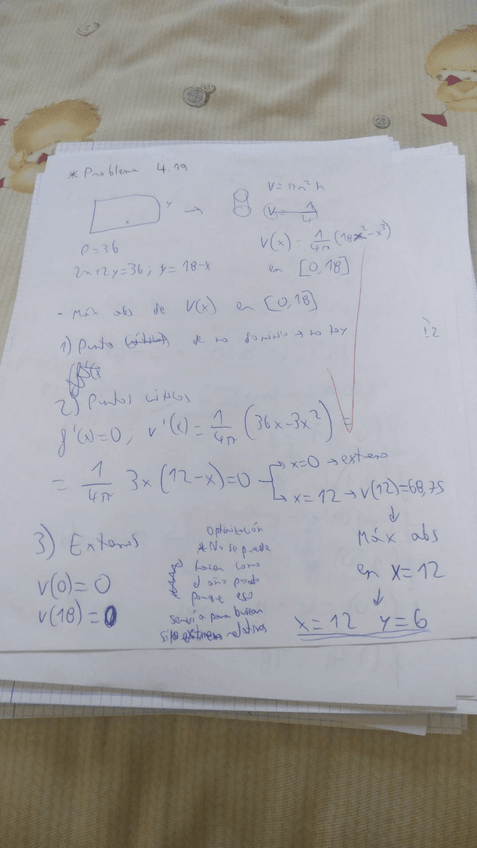 * Problema 4.19
x y →
V = πr²h
P = 36
2x+2y=36; y = 18-x
V(x) = 1/4π (18x²-x³)
en [0,18]
- Máx abs de V(x) en [0,18]
1) Puntos de no dominio → no hay
12
2) Puntos críticos
f'(x)=0; v'(x) = 1/4π (36x-3x²) =
= 1/4π 3x(12-x)=0 → x=0 → extremo
→ x=12 → v(12)=68,75
↓
Máx abs
en x=12
↓
x=12 y=6
3) Extremos
v(0)=0
v(18)=0
Optimización
* No se puede
hacer como
el año pasado
porque eso
servía para buscar
extremos relativos